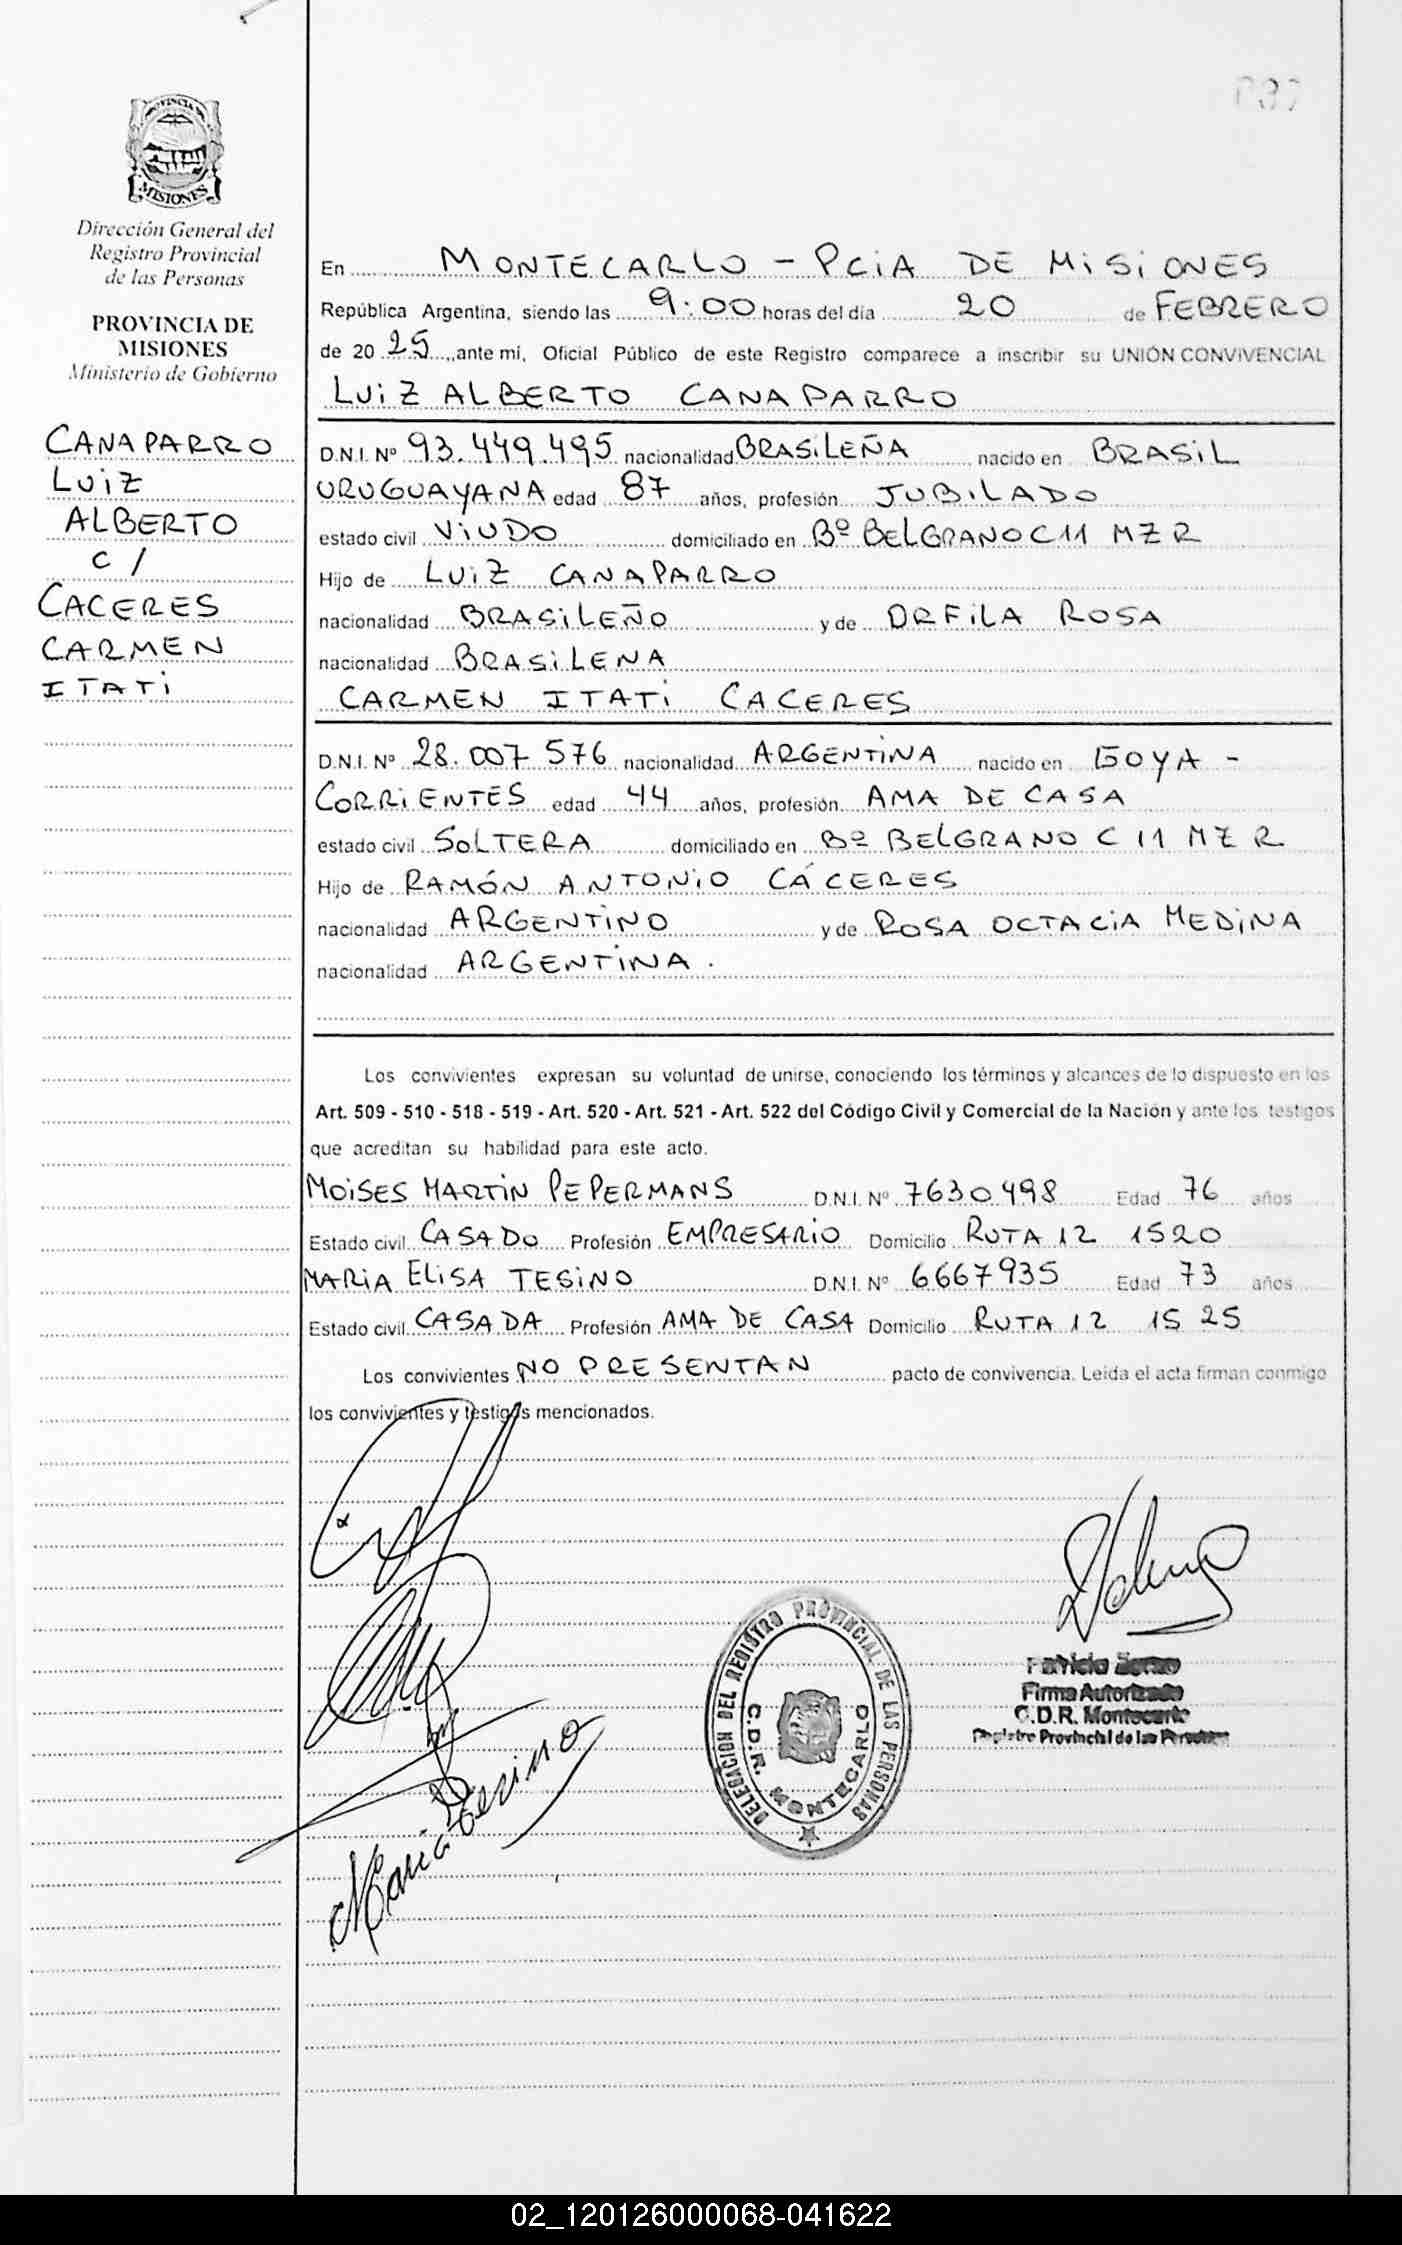 PROVINCIA DE
MISIONES
Dirección General del
Registro Provincial
de las Personas
PROVINCIA DE
MISIONES
Ministerio de Gobierno
CANAPARRO
LUIZ
ALBERTO
C /
CACERES
CARMEN
ITATI
En MONTECARLO - PCIA DE MISIONES
República Argentina, siendo las 9:00 horas del día 20 de FEBRERO
de 20 25, ante mi, Oficial Público de este Registro comparece a inscribir su UNIÓN CONVIVENCIAL
LUIZ ALBERTO CANAPARRO
D.N.I. Nº 93.449.495 nacionalidad BRASILEÑA nacido en BRASIL
URUGUAYANA edad 87 años, profesión JUBILADO
estado civil VIUDO domiciliado en Bº BELGRANO C 11 MZ R
Hijo de LUIZ CANAPARRO
nacionalidad BRASILEÑO y de ORFILA ROSA
nacionalidad BRASILENA
CARMEN ITATI CACERES
D.N.I. Nº 28.007 576 nacionalidad ARGENTINA nacido en GOYA -
CORRIENTES edad 44 años, profesión AMA DE CASA
estado civil SOLTERA domiciliado en Bº BELGRANO C 11 MZ R
Hijo de RAMÓN ANTONIO CÁCERES
nacionalidad ARGENTINO y de ROSA OCTACIA MEDINA
nacionalidad ARGENTINA.
Los convivientes expresan su voluntad de unirse, conociendo los términos y alcances de lo dispuesto en los
Art. 509 - 510 - 518 - 519 - Art. 520 - Art. 521 - Art. 522 del Código Civil y Comercial de la Nación y ante los testigos
que acreditan su habilidad para este acto.
MOISES MARTIN PEPERMANS D.N.I. Nº 7630498 Edad 76 años
Estado civil CASADO Profesión EMPRESARIO Domicilio RUTA 12 1520
MARIA ELISA TESINO D.N.I. Nº 6667935 Edad 73 años
Estado civil CASADA Profesión AMA DE CASA Domicilio RUTA 12 1525
Los convivientes NO PRESENTAN pacto de convivencia. Leída el acta firman conmigo
los convivientes y testigos mencionados.
DELEGACION DEL REGISTRO PROVINCIAL DE LAS PERSONAS
C.D.R. MONTECARLO
Firma Autorizada
C.D.R. Montecarlo
Registro Provincial de las Personas
02_120126000068-041622